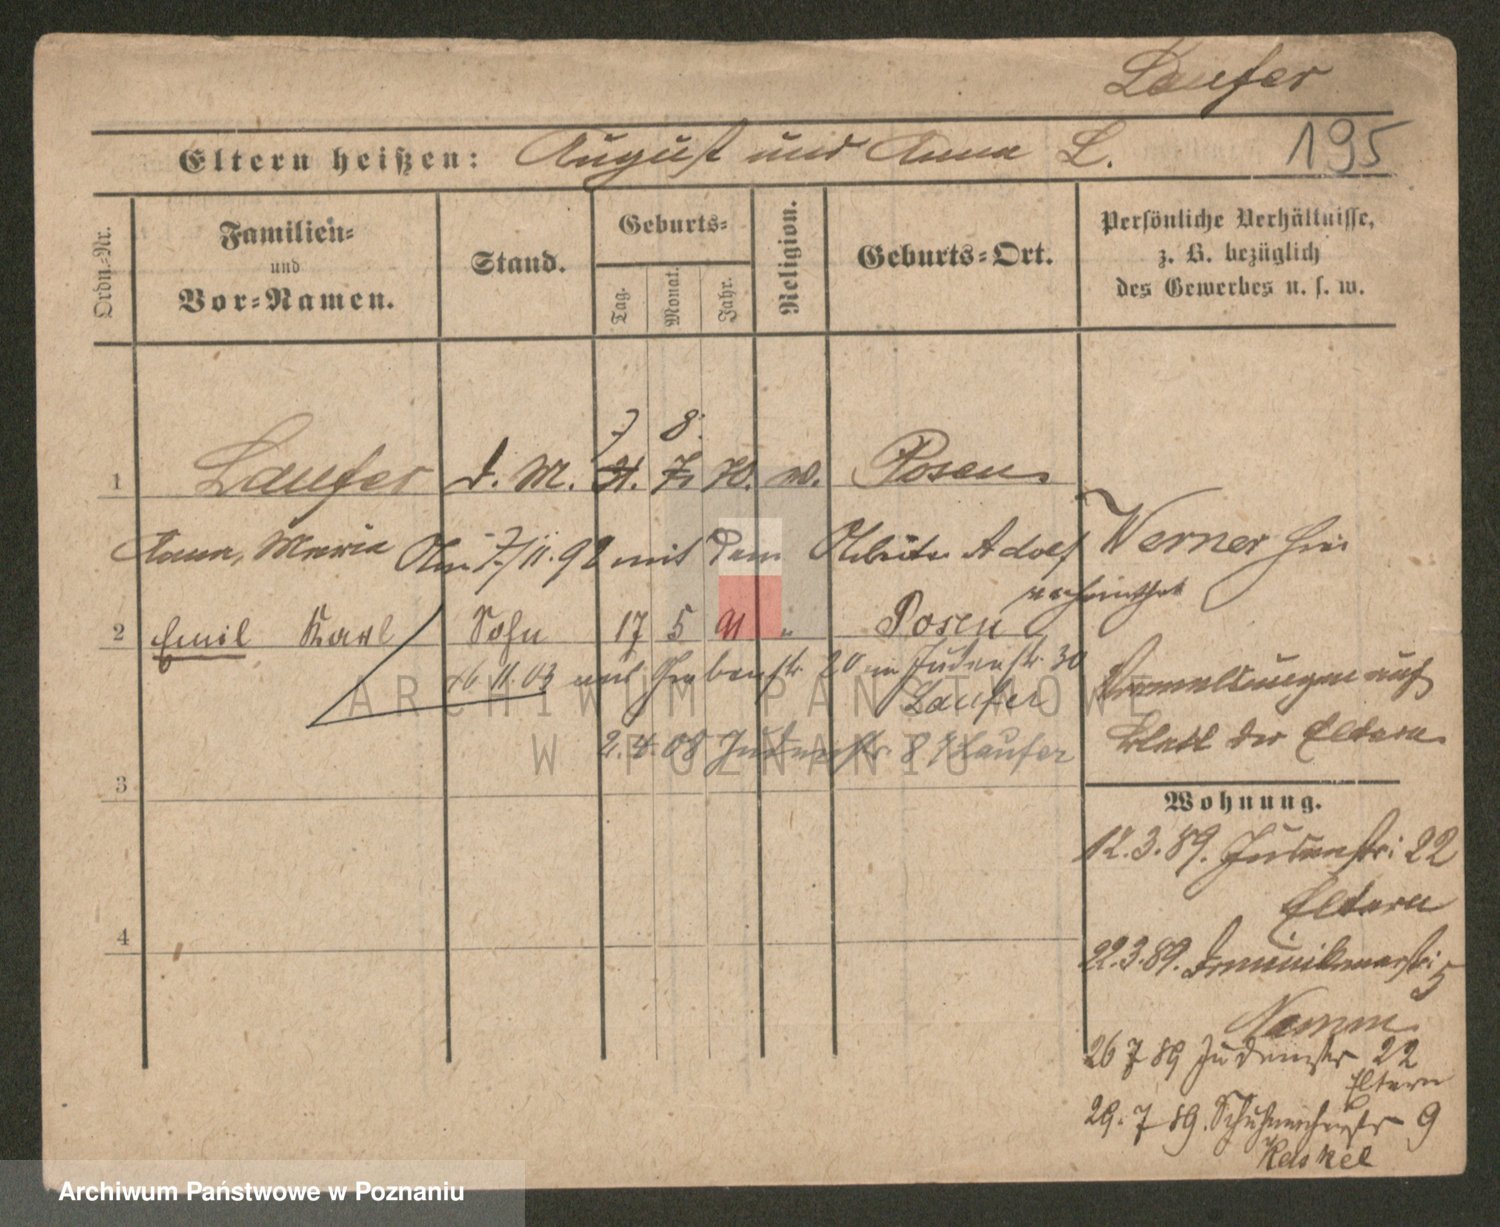 Laufer
195
Eltern heißen: August und Anna L.
Ordn.-Nr.
Familien-
und
Vor-Namen.
Stand.
Geburts-
Tag. Monat. Jahr.
Religion.
Geburts-Ort.
Persönliche Verhältnisse,
z. B. bezüglich
des Gewerbes u. s. w.
7 8.
1 Laufer d. M. 21. 7. 70. Posen
Anna, Maria 7/11. 92 mit dem Adolf Werner hier
verheirathet
2 Emil Karl Sohn 17 5 91 " Posen
16 11. 03 20 Judenstr. 30
Laufer
2. 4. 08 Judenstr. 8 Laufer
auf
Blatt der Eltern
3
4
Wohnung.
12. 3. 89. Judenstr: 22
Eltern
22. 3. 89. Dominikanerstr: 5
26 7 89 Judenstr 22
Eltern
29. 7 89. Schuhmacherstr 9
Kaskel
ARCHIWUM PAŃSTWOWE
W POZNANIU
Archiwum Państwowe w Poznaniu